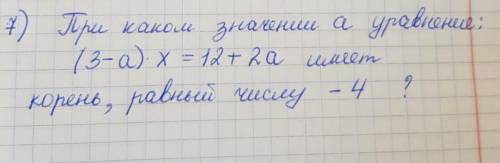 7) При каком значении а уравнение:
(3-а)·х = 12+2а имеет
корень, равный числу -4 ?